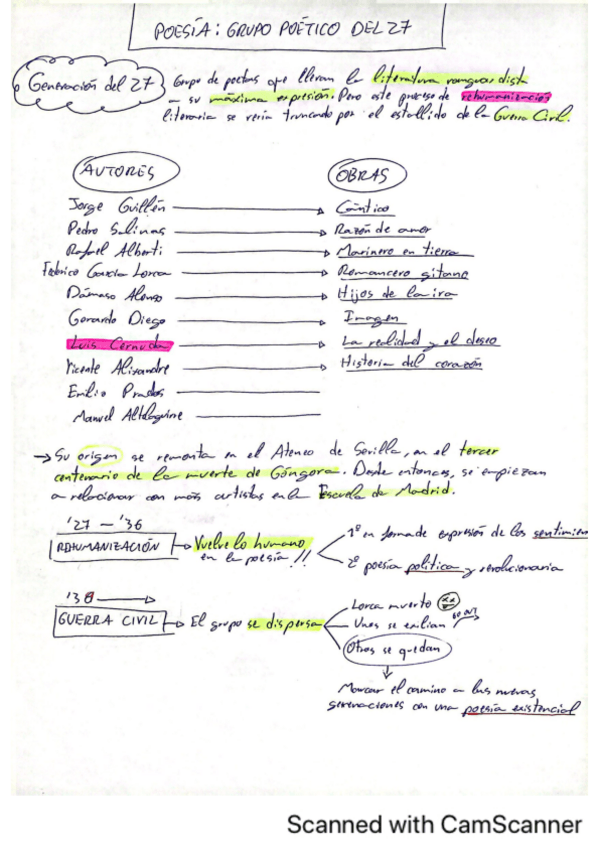 POESÍA: GRUPO POÉTICO DEL 27
Generación del 27
Grupo de poetas que llevan la literatura vanguardista
a su máxima expresión. Pero este proceso de rehumanización
literaria se vería truncado por el estallido de la Guerra Civil.
AUTORES OBRAS
Jorge Guillén Cántico
Pedro Salinas Razón de amor
Rafael Alberti Marinero en tierra
Federico García Lorca Romancero gitano
Dámaso Alonso Hijos de la ira
Gerardo Diego Imagen
Luis Cernuda La realidad y el deseo
Vicente Alixandre Historia del corazón
Emilio Prados
Manuel Altolaguirre
Su origen se remonta en el Ateneo de Sevilla, en el tercer
centenario de la muerte de Góngora. Desde entonces, se empiezan
a relacionar con más artistas en la Escuela de Madrid.
'27 - '36
REHUMANIZACIÓN Vuelve lo humano
en la poesía!!
1º en forma de expresión de los sentimien
2º poesía política y revolucionaria
'36
GUERRA CIVIL El grupo se dispersa
Lorca muerto
Unos se exilian
Otros se quedan
Marcar el camino a las nuevas
generaciones con una poesía existencial
Scanned with CamScanner